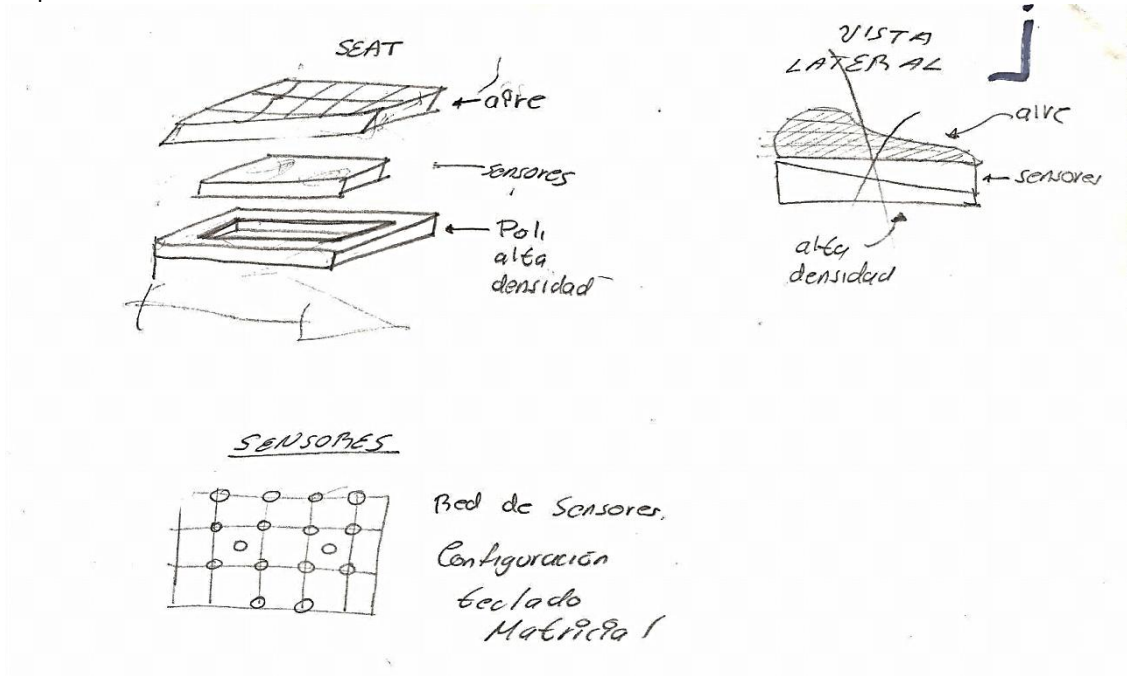 SEAT
aire
sensores
Poli
alta
densidad
VISTA
LATERAL
aire
sensores
alta
densidad
SENSORES
Red de Sensores.
Configuración
teclado
Matricial